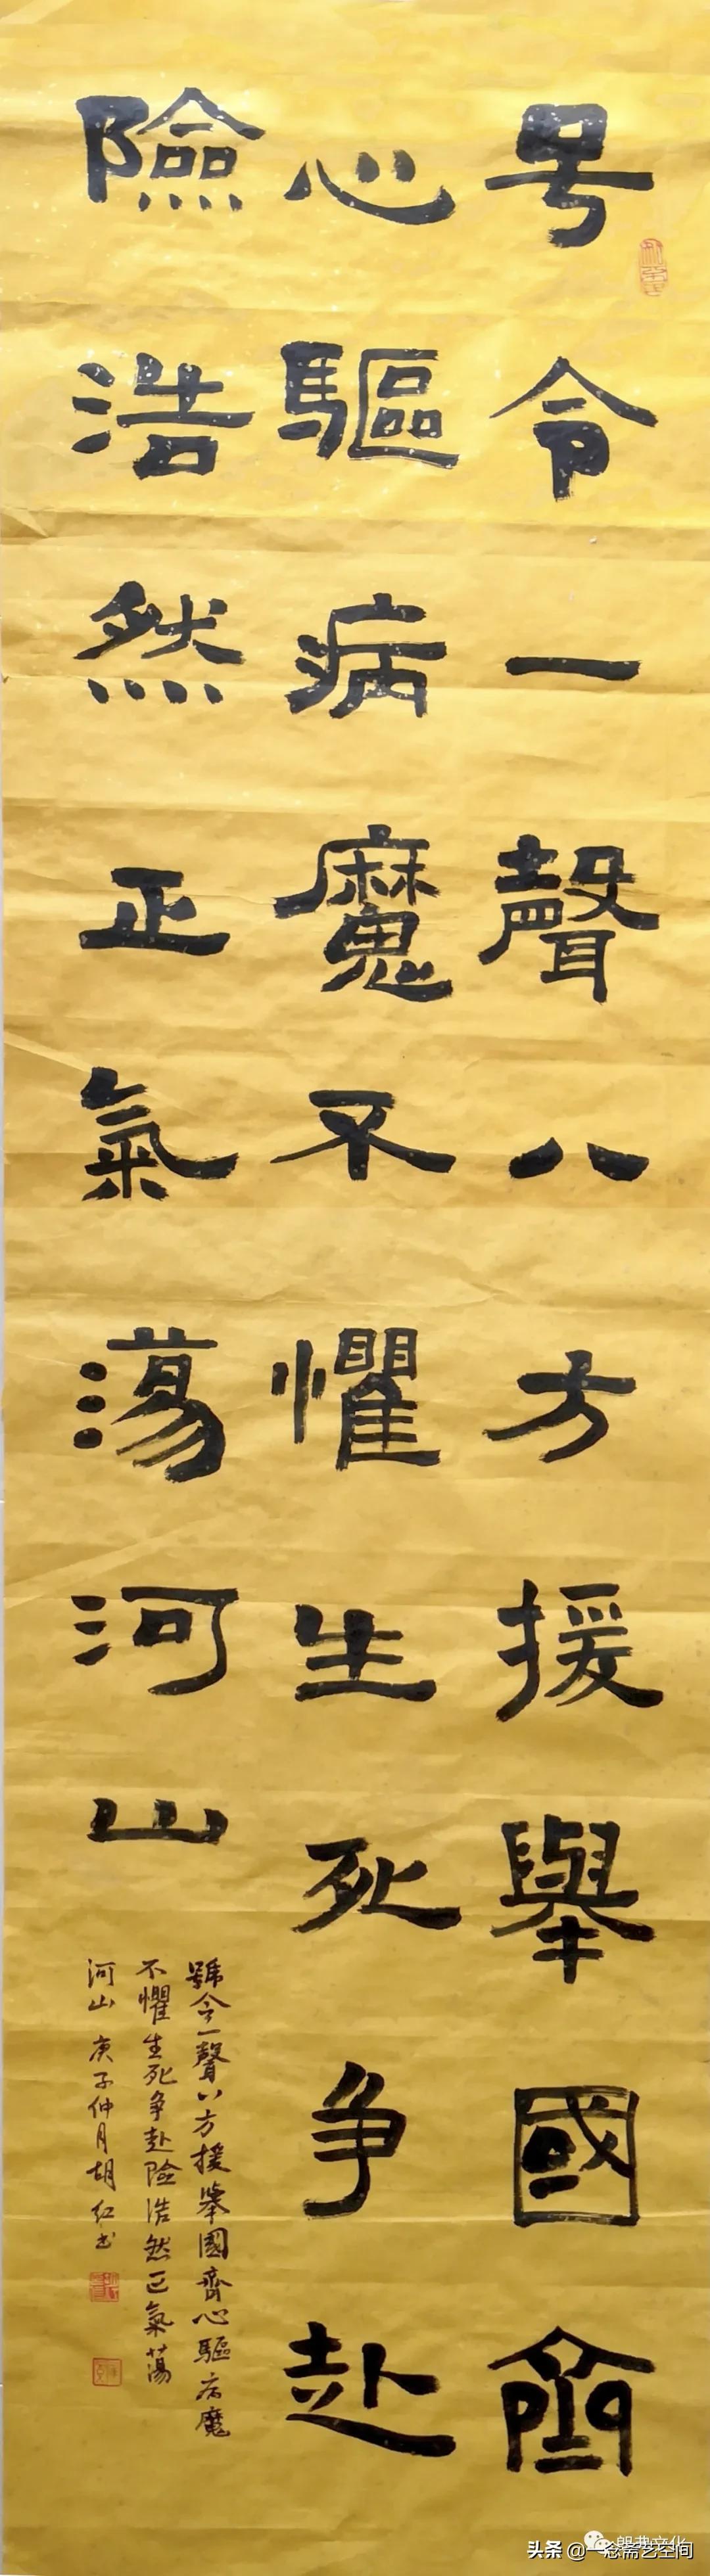 号令一聲八方援舉國齊
心驅病魔不懼生死争赴
險浩然正氣蕩河山
號令一聲八方援舉國齊心驅病魔
不懼生死争赴險浩然正氣蕩
河山 庚子仲月胡紅書
头条 @一念斋艺空间